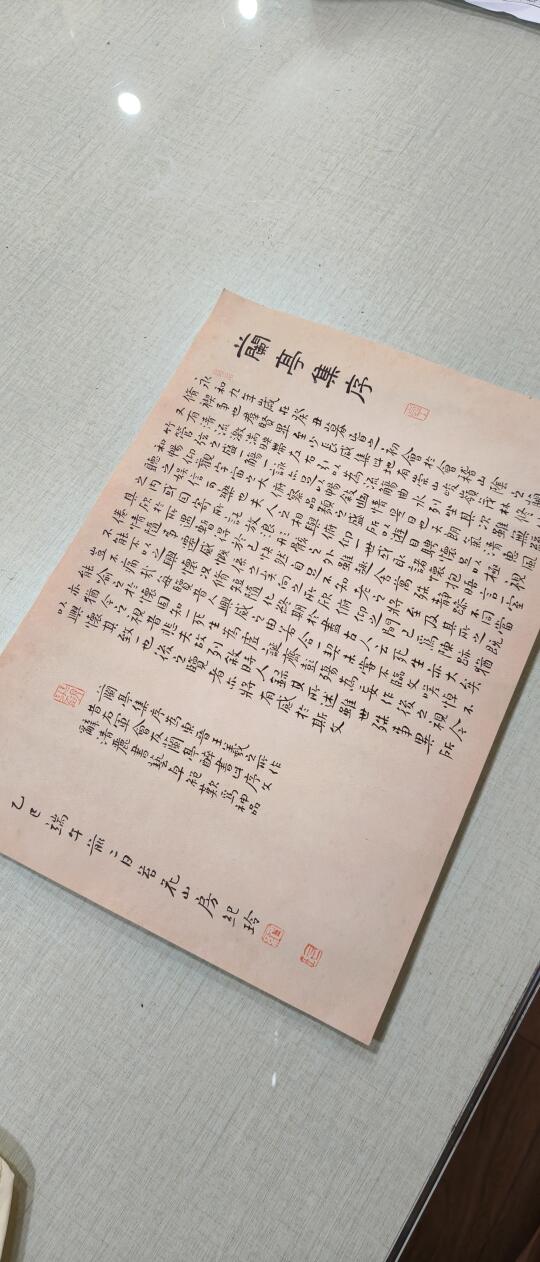 蘭亭集序
永和九年歲在癸丑暮春之初會於會稽山陰之
脩禊事也羣賢畢至少長咸集此地有崇山峻領茂林修
又有清流激湍映帶左右引以為流觴曲水列坐其次雖無
竹管弦之盛一觴一詠亦足以暢敘幽情是日也天朗氣清惠風
和暢仰觀宇宙之大俯察品類之盛所以遊目騁懷足以極視
聽之娛信可樂也夫人之相與俯仰一世或取諸懷抱悟言一室
之內或因寄所託放浪形骸之外雖趣舍萬殊靜躁不同當
其欣於所遇暫得於己快然自足不知老之將至及其所之既
倦情隨事遷感慨係之矣向之所欣俯仰之間已為陳跡猶
不能不以之興懷況修短隨化終期於盡古人云死生亦大矣
豈不痛哉每覽昔人興感之由若合一契未嘗不臨文嗟悼不
能喻之於懷固知一死生為虛誕齊彭殤為妄作後之視今
亦猶今之視昔悲夫故列敘時人錄其所述雖世殊事異所
以興懷其致一也後之覽者亦將有感於斯文
蘭亭集序為東晉王羲之所作
昔右軍會友蘭亭醉書此序文
辭清麗書藝卓絕歎為神品
乙巳端午前二日苔花山房紀玲